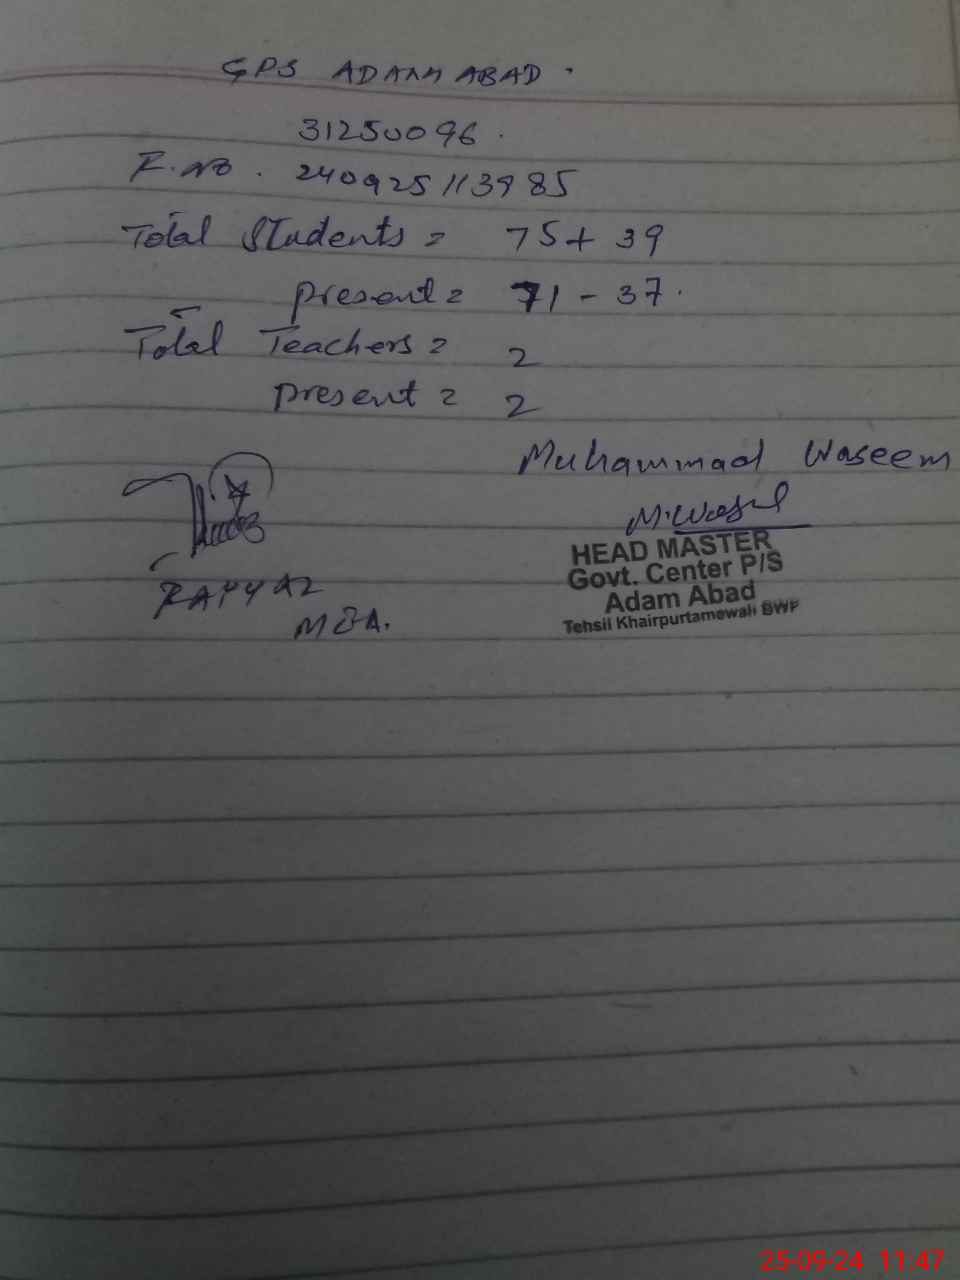 GPS ADAM ABAD.
31250096.
F.No. 240925113985
Total Students = 75+39
present = 71-37.
Total Teachers = 2
present = 2
Muhammad Waseem
M.Waseem
HEAD MASTER
Govt. Center P/S
Adam Abad
Tehsil Khairpurtamewali BWP
FAYYAZ
MEA.
25-09-24 11:47